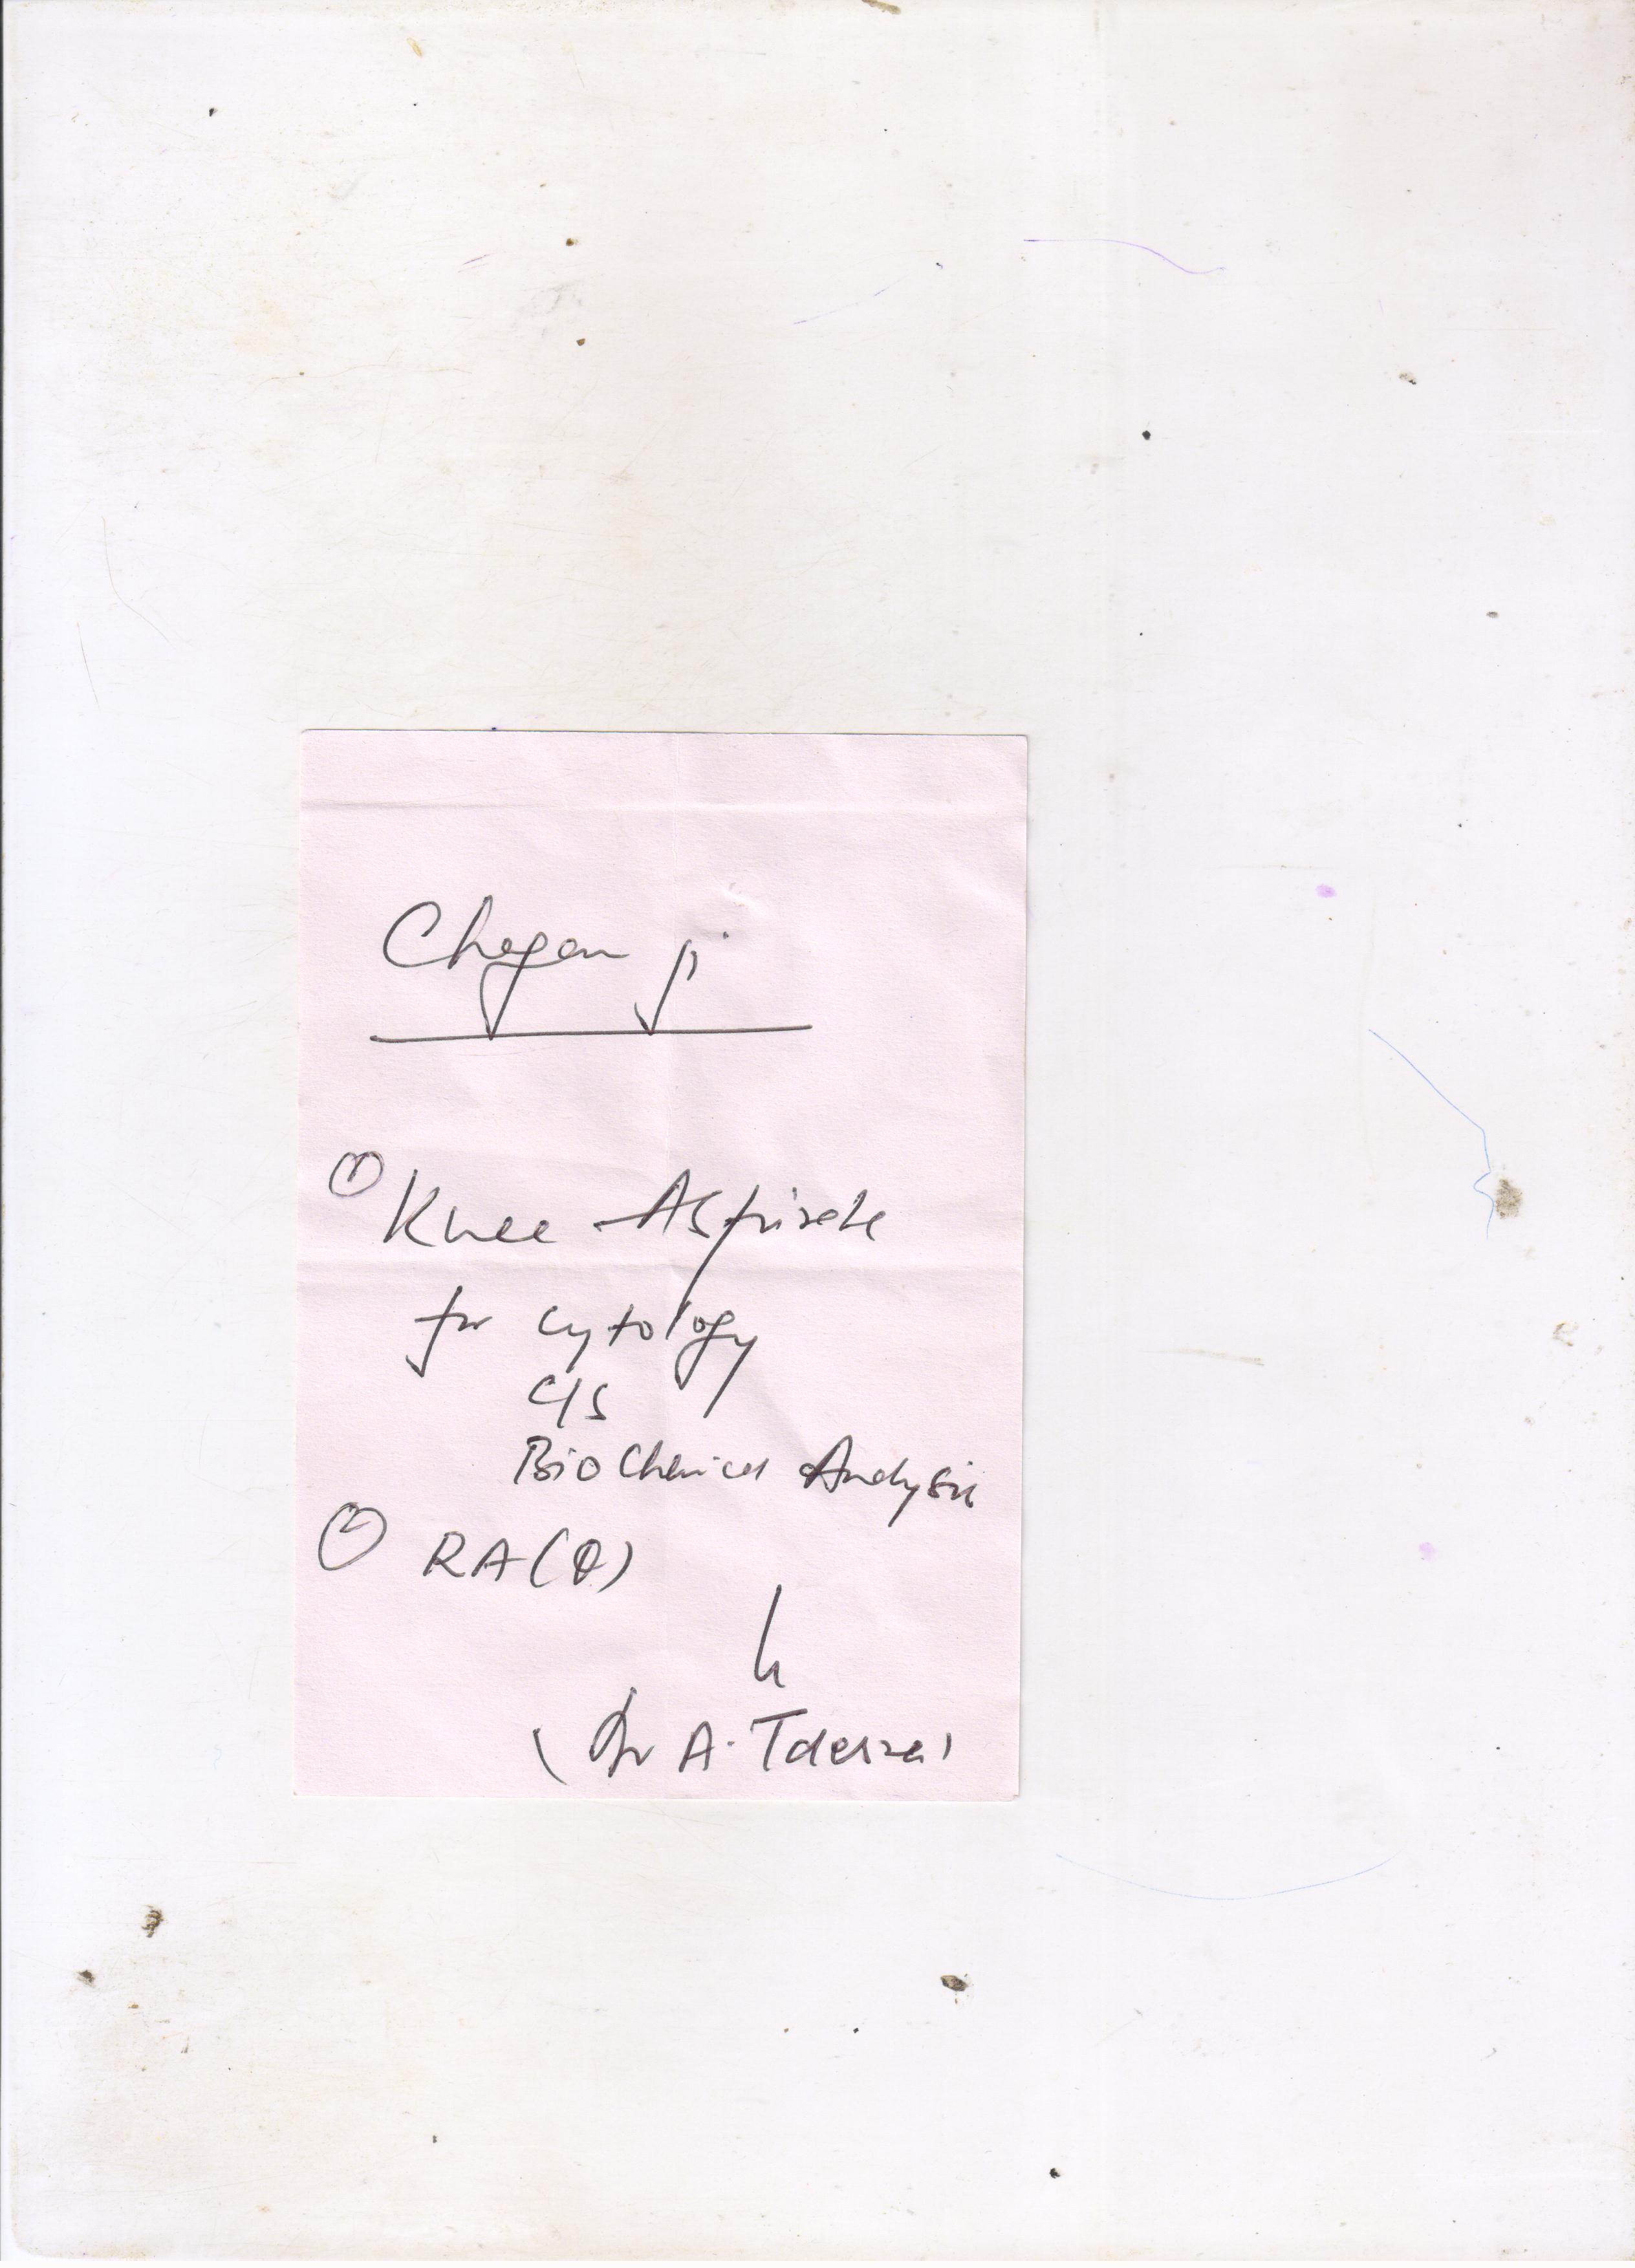 Chagan ji
① Knee Aspirate
for cytology
C/S
BioChemical Analysis
② RA(Q)
(Dr A.